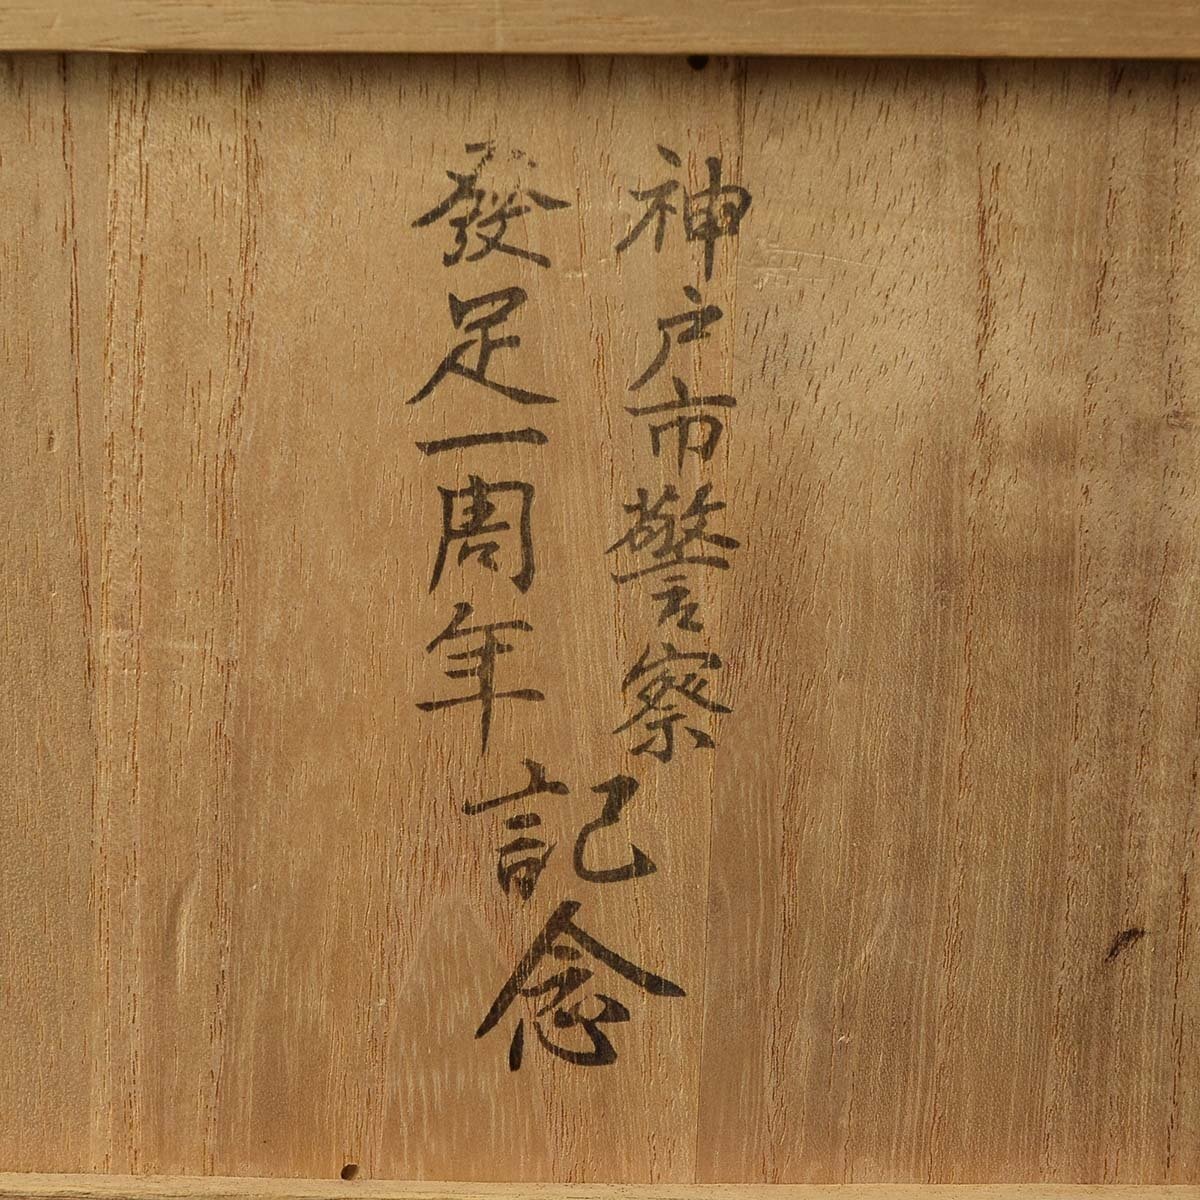 神戸市警察
發足一周年
記念